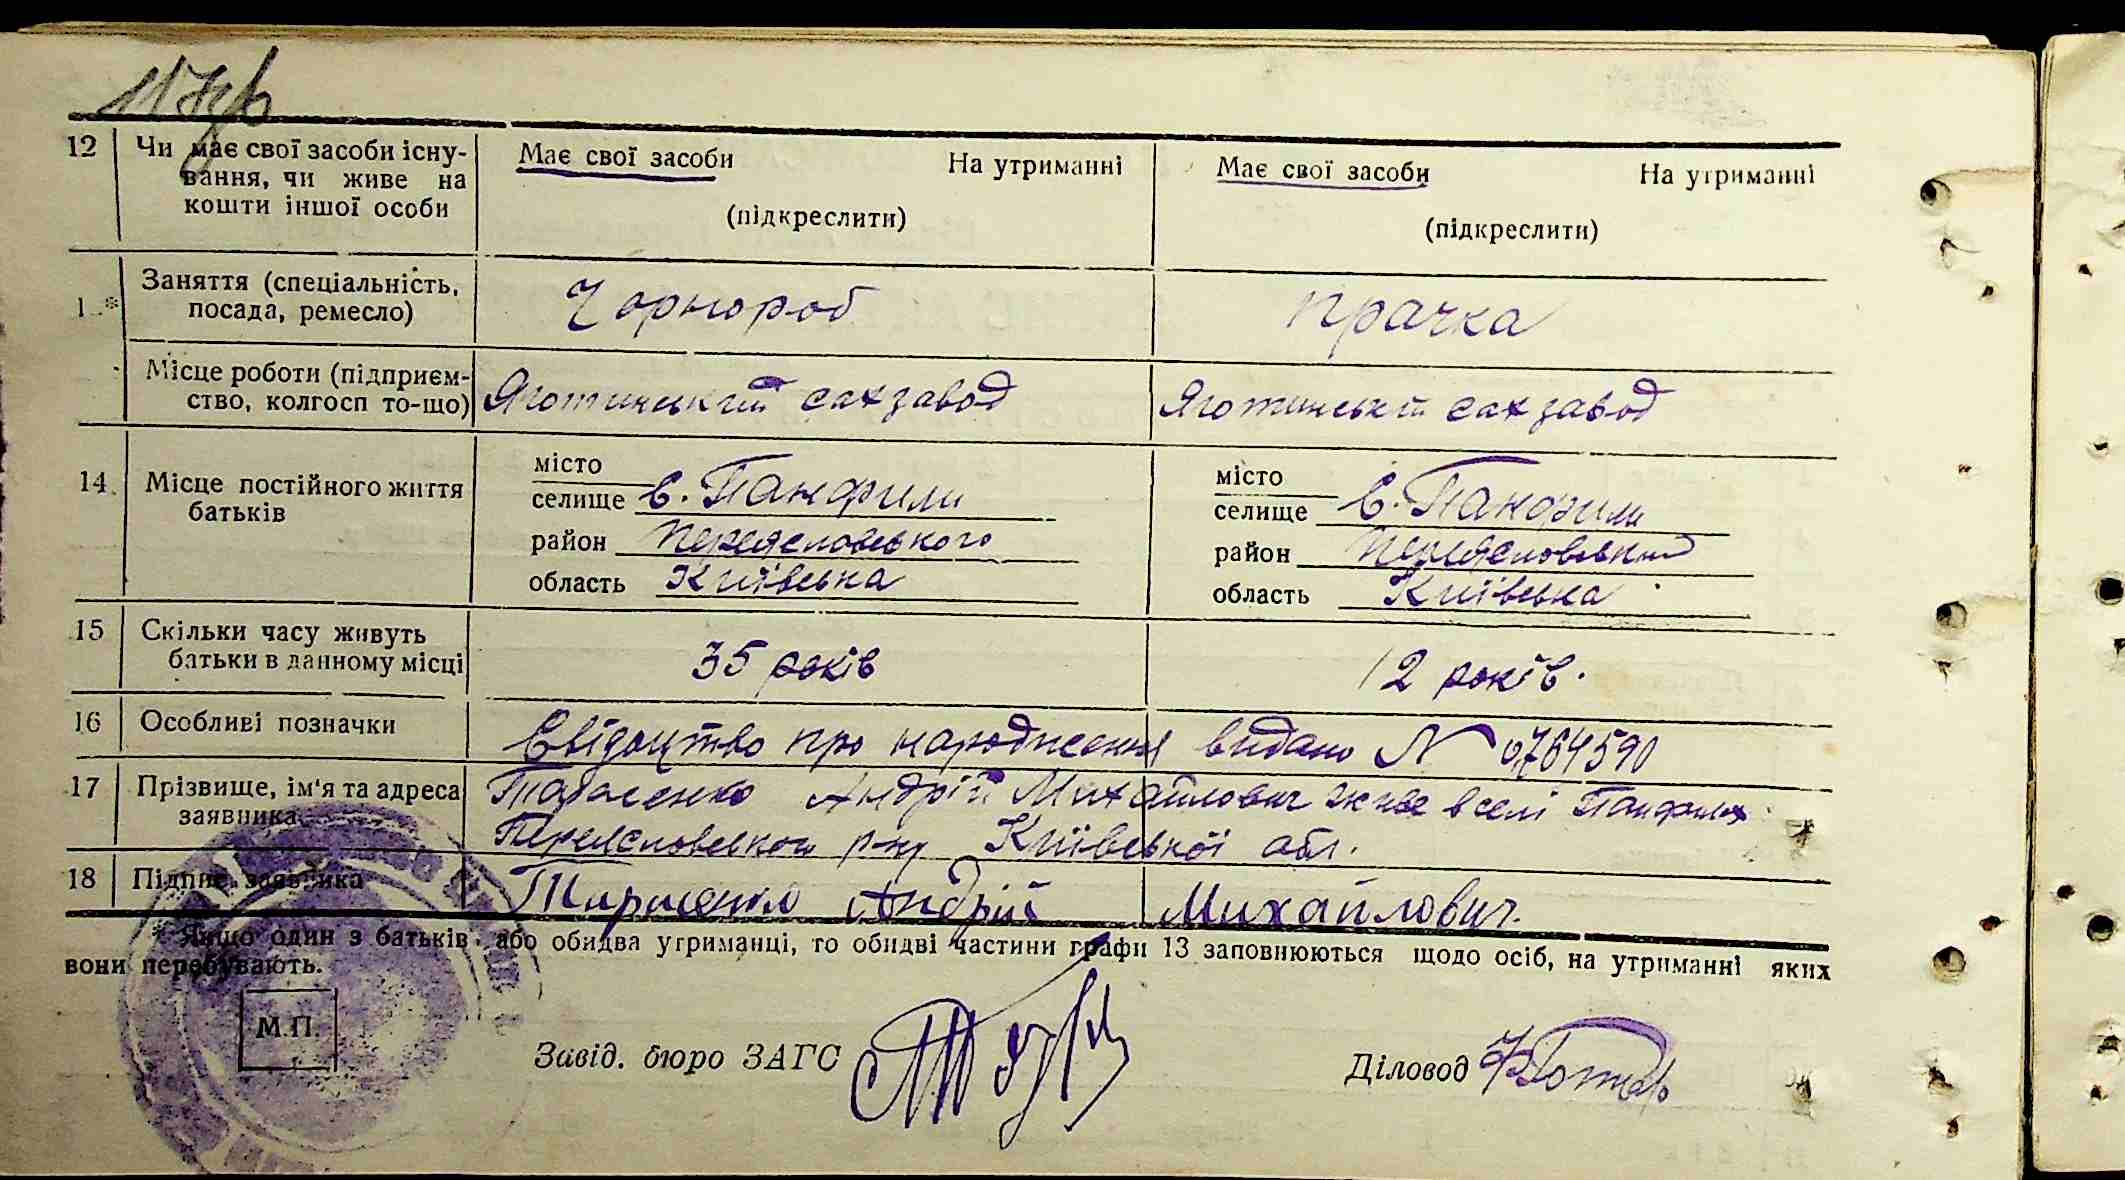 117зв
12 Чи має свої засоби існу-
вання, чи живе на
кошти іншої особи
Має свої засоби На утриманні
(підкреслити)
Має свої засоби На утриманні
(підкреслити)
1 * Заняття (спеціальність,
посада, ремесло)
Чорнороб
прачка
Місце роботи (підприєм-
ство, колгосп то-що)
Яготинський сахзавод
Яготинський сахзавод
14 Місце постійного життя
батьків
місто
селище с. Панфили
район Переясловського
область Київська
місто
селище с. Панфили
район Переясловський
область Київська
15 Скільки часу живуть
батьки в данному місці
35 років
12 років.
16 Особливі позначки
Свідоцтво про народження видано № 0,764590
17 Прізвище, ім'я та адреса
заявника
Андрій Михайлович живе в селі Панфилах
Переясловського р-ну Київської обл.
18 Підпис заявника
Андрій Михайлович.
* Якщо один з батьків, або обидва утриманці, то обидві частини графи 13 заповнюються щодо осіб, на утриманні яких
вони перебувають.
М.П.
Завід. бюро ЗАГС
Діловод